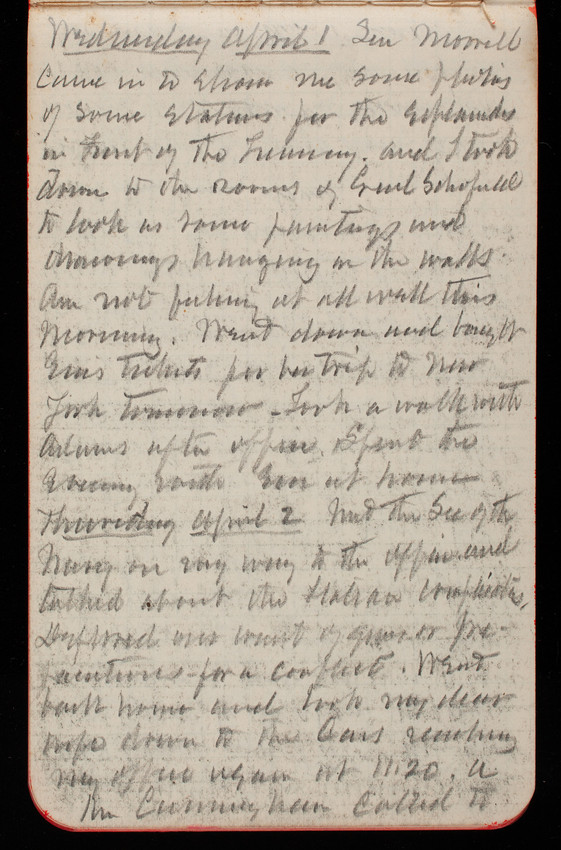 Wednesday April 1 Sen Morrill
came in to show me some photos
of some statues for the Esplanade
in front of the Treasury. and I took
down to the rooms of Genl Schofield
to look at some paintings and
drawings hanging on the walls
Am not feeling at all well this
morning. Went down and bought
Ems tickets for her trip to New
York tomorrow - Took a walk with
Adams after office. Spent the
Evening with Em at home
Thursday April 2 Met the Sec of the
Navy on my way to the office and
talked about the Italian complication.
Deplored our want of guns or pre-
parations for a conflict. Went
back home and took my dear
wife down to the Cars reaching
my office again at 11.20. A
Mr Cunningham called to